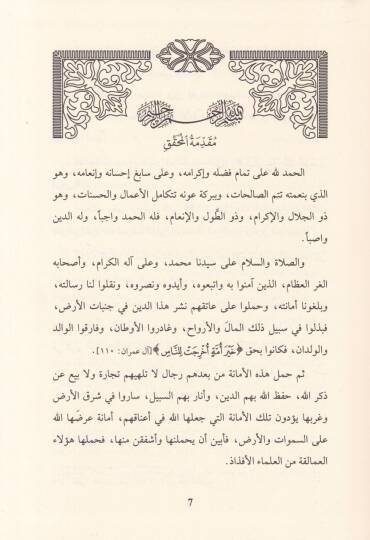 بسم الله الرحمن الرحيم
مُقَدِّمَةُ المُحَقِّقِ
الحمد لله على تمام فضله وإكرامه، وعلى سابغ إحسانه وإنعامه، وهو
الذي بنعمته تتم الصالحات، وببركة عونه تتكامل الأعمال والحسنات، وهو
ذو الجلال والإكرام، وذو الطَّول والإنعام، فله الحمد واجباً، وله الدين
واصباً.
والصلاة والسلام على سيدنا محمد، وعلى آله الكرام، وأصحابه
الغر العظام، الذين آمنوا به واتبعوه، وأيدوه ونصروه، ونقلوا لنا رسالته،
وبلغونا أمانته، وحملوا على عاتقهم نشر هذا الدين في جنبات الأرض،
فبذلوا في سبيل ذلك المالَ والأرواح، وغادروا الأوطان، وفارقوا الوالد
والولدان، فكانوا بحق ﴿خَيْرَ أُمَّةٍ أُخْرِجَتْ لِلنَّاسِ﴾ [آل عمران: ١١٠].
ثم حمل هذه الأمانة من بعدهم رجال لا تلهيهم تجارة ولا بيع عن
ذكر الله، حفظ الله بهم الدين، وأنار بهم السبيل، ساروا في شرق الأرض
وغربها يؤدون تلك الأمانة التي جعلها الله في أعناقهم، أمانة عرضَها الله
على السموات والأرض، فأبين أن يحملنها وأشفقن منها، فحملها هؤلاء
العمالقة من العلماء الأفذاذ.
7